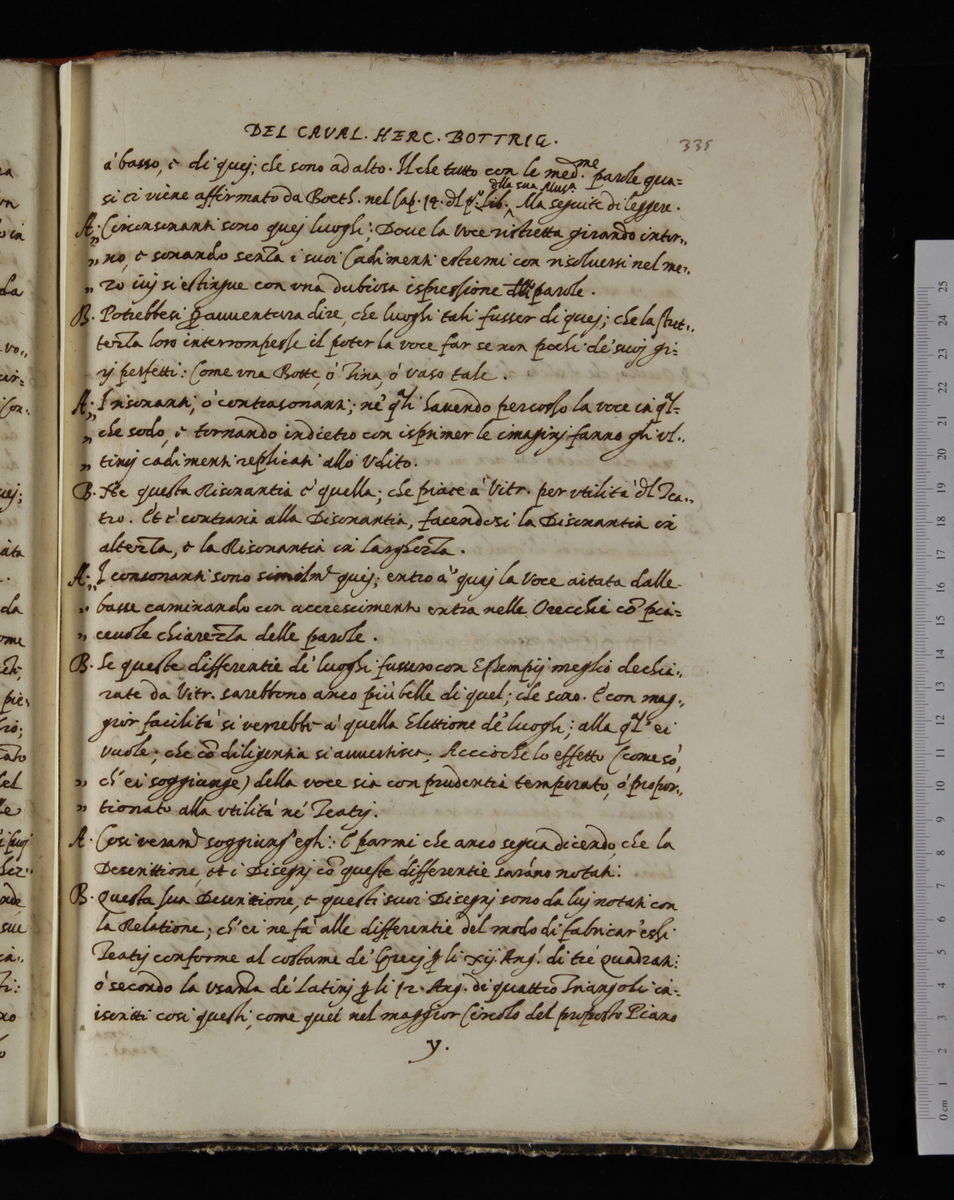 DEL CAVAL. HERC. BOTTRIG.
335
à basso, e di quej; che sono ad alto. Il che tutto con le med.me parole qua=
della sua Musa
si ci viene affirmato da Boeth. nel Cap. 14. dl p.o lib. Ma seguite di leggere.
A. Circonsonanti sono quej luoghi; Doue la Voce ristretta girando intor,,
,, no, e sonando senza i suoi Cadimenti estremi con risoluersi nel me,,
,, zo iuj si estingue con vna dubiosa ispressione parole.
B. Potrebbesi p auuentura dire, che luoghi tali fusser di quej; che la stret,,
tezza loro interrompesse il poter la voce far se non pochi dé suoj gi=
rj perfetti: Come vna Botte, ó Tina, ó vaso tale.
A. I risonanti, ó contrasonanti; né qli hauendo percosso la voce in ql=
,, che sodo, e tornando indietro con isprimer le imaginj fanno gli vl,,
,, timj cadimenti replicati allo Vdito.
B. Et questa Risonantia é quella; che piace á Vitr. per vtilità dl Tea,,
tro. Et é contraria alla Disonantia, facendosi la Disonantia in
altezza, e la Risonantia in larghezza.
A. I consonanti sono similmte quej; entro à quaj la Voce aitata dalle
,, basse caminando con accrescimento entra nelle Orecchie co pia=
,, ceuole chiarezza delle parole.
B. Se queste differentie dé luoghi fussero con Essempij meglio dechia,,
rate da Vitr. sarebbono anco più belle di quel; che sono. E con mag,,
gior facilità si verrebbe à quella Elettione dé luoghi; alla ql ei
vuole; che co diligentia si auuertisca; Accioche lo effetto (come só,
,, ch' ei soggiunge) della voce sia con prudentia temperato, ó propor,,
,, tionato alla vtilità né Teatrj.
A. Cosi veramte soggiuns' egli: E parmi che anco segua dicendo, che la
Descrittione, et i Disegnj co queste differentie saráno notati.
B. Questa sua Descrittione, e questi suoi Disegnj sono da luj notati con
la Relatione; ch' ei ne fa alle differentie del modo di fabricar' essi
Teatrj conforme al costume dé Grecj p li xij. Ang.i di tré Quadrati:
ó secondo la vsanza dé Latinj p li 12. Ang. di quattro Triangoli in=
iscritti cosi questi, come quei nel maggior Circolo del proposto Piano
y.